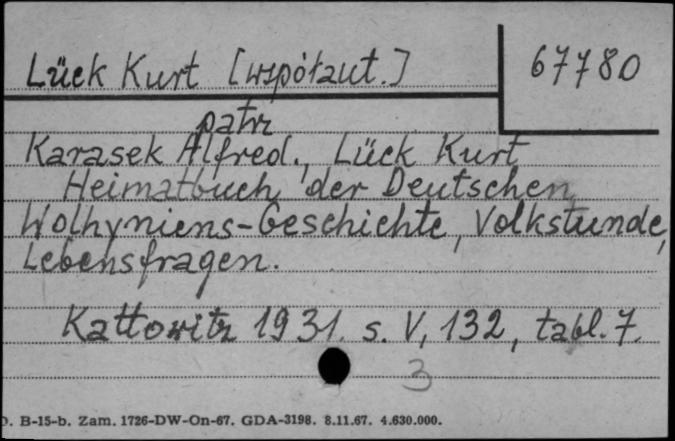 Lück Kurt [współaut.]
67780
patrz
Karasek Alfred., Lück Kurt
Heimatbuch der Deutschen
Wolhyniens-Geschichte, Volkstunde,
Lebensfragen.
Kattowitz 1931. s. V, 132, tabl. 7.
3
B-15-b. Zam. 1726-DW-On-67. GDA-3198. 8.11.67. 4.630.000.